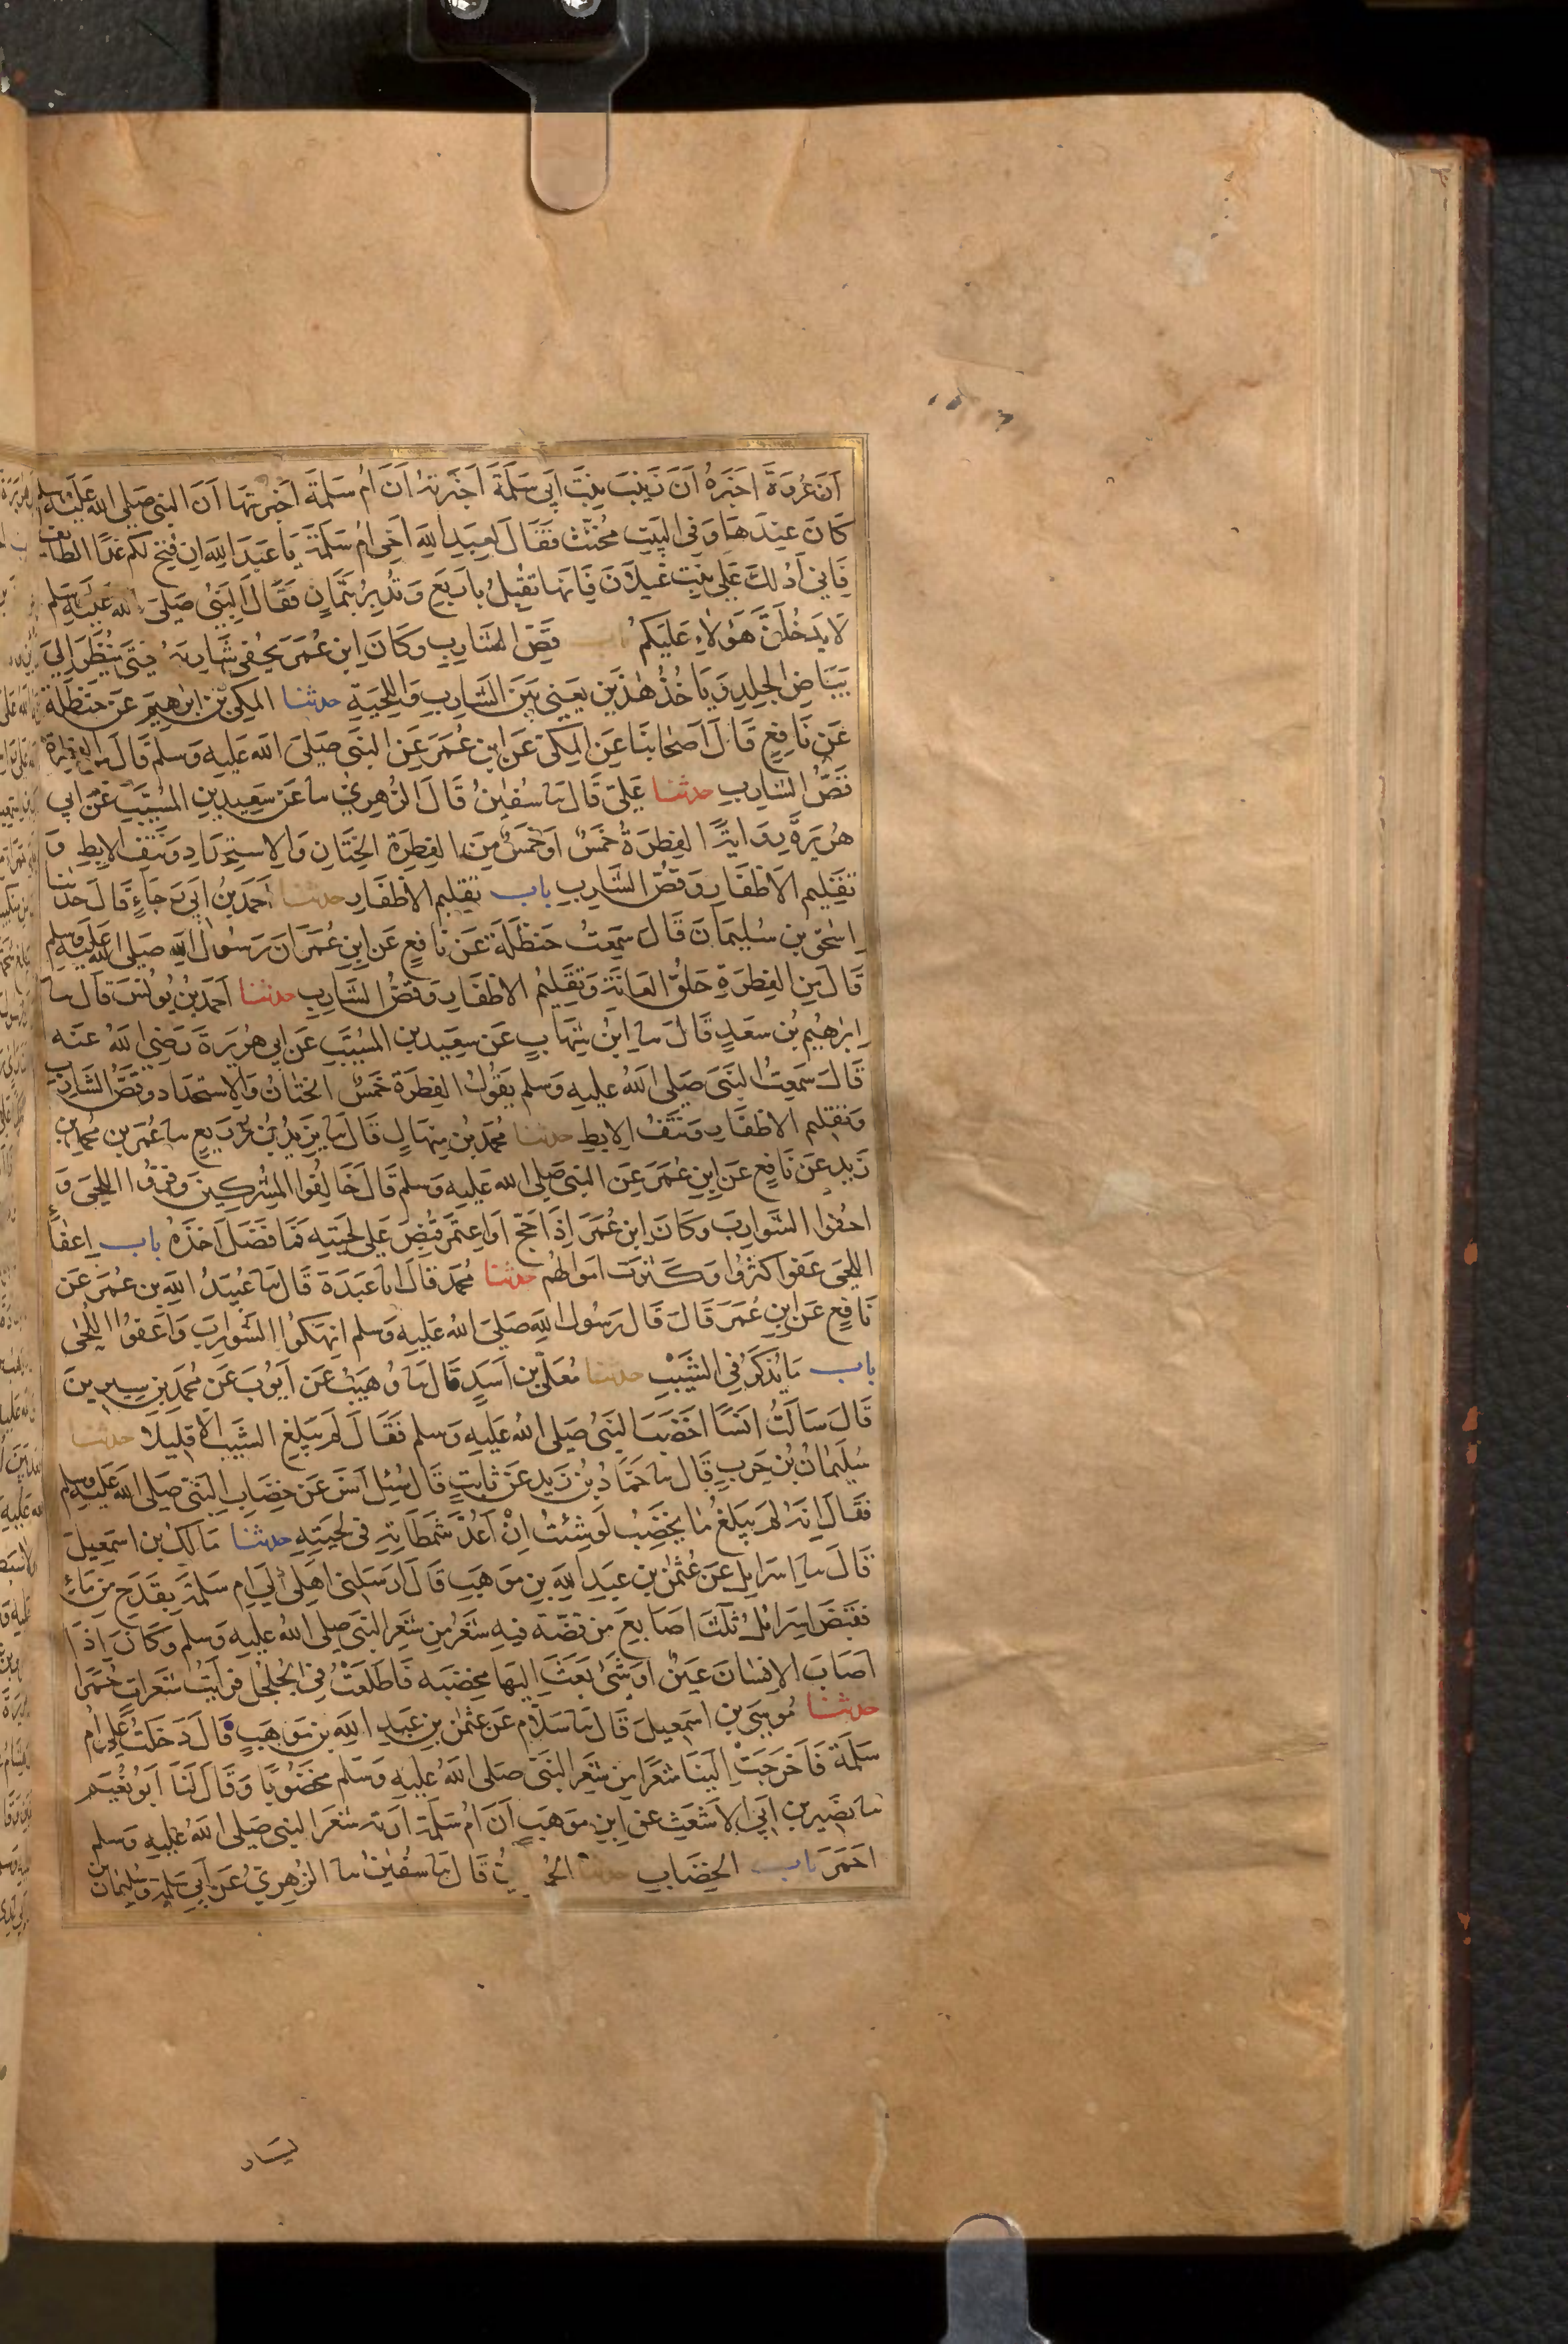 ان عروة اخبره ان زينب بنت ابي سلمة اخبرته ان ام سلمة اخبرتها ان النبي صلى الله عليه وسلم
كان عندها وفي البيت مخنث فقال لعبد الله اخي ام سلمة يا عبد الله ان فتح لكم غدا الطائف
فاني ادلك على بنت غيلان فانها تقبل باربع وتدبر بثمان فقال النبي صلى الله عليه وسلم
لا يدخلن هؤلاء عليكم باب قص الشارب وكان ابن عمر يحفي شاربه حتى ينظر الى
بياض الجلد وياخذ هذين يعني بين الشارب واللحية حدثنا المكي بن ابرهيم عن حنظلة
عن نافع قال اصحابنا عن المكي عن ابن عمر عن النبي صلى الله عليه وسلم قال من الفطرة
قص الشارب حدثنا علي قال نا سفين قال الزهري نا عن سعيد بن المسيب عن ابي
هريرة رواية الفطرة خمس او خمس من الفطرة الختان والاستحداد ونتف الابط و
تقليم الاظفار وقص الشارب باب تقليم الاظفار حدثنا احمد بن ابي رجاء قال حدثنا
اسحق بن سليمان قال سمعت حنظلة عن نافع عن ابن عمر ان رسول الله صلى الله عليه وسلم
قال من الفطرة حلق العانة وتقليم الاظفار وقص الشارب حدثنا احمد بن يونس قال نا
ابرهيم بن سعد قال نا ابن شهاب عن سعيد بن المسيب عن ابي هريرة رضي الله عنه
قال سمعت النبي صلى الله عليه وسلم يقول الفطرة خمس الختان والاستحداد وقص الشارب
وتقليم الاظفار ونتف الابط حدثنا محمد بن منهال قال نا يزيد بن زريع نا عمر بن محمد بن
زيد عن نافع عن ابن عمر عن النبي صلى الله عليه وسلم قال خالفوا المشركين وفروا اللحى و
احفوا الشوارب وكان ابن عمر اذا حج او اعتمر قبض على لحيته فما فضل اخذه باب اعفاء
اللحى عفوا كثروا وكثرت اموالهم حدثنا محمد قال انا عبدة قال نا عبيد الله بن عمر عن
نافع عن ابن عمر قال قال رسول الله صلى الله عليه وسلم انهكوا الشوارب واعفوا اللحى
باب ما يذكر في الشيب حدثنا معلى بن اسد قال نا وهيب عن ايوب عن محمد بن سيرين
قال سالت انسا اخضب النبي صلى الله عليه وسلم فقال لم يبلغ الشيب الا قليلا حدثنا
سليمان بن حرب قال نا حماد بن زيد عن ثابت قال سئل انس عن خضاب النبي صلى الله عليه وسلم
فقال انه لم يبلغ ما يخضب لو شئت ان اعد شمطاته في لحيته حدثنا مالك بن اسمعيل
قال نا اسرايل عن عثمن بن عبد الله بن موهب قال ارسلني اهلي الى ام سلمة بقدح من ماء
فقبض اسرائل ثلث اصابع من قصة فيه شعر من شعر النبي صلى الله عليه وسلم وكان اذا
اصاب الانسان عين او شئ بعث اليها مخضبه فاطلعت في الجلجل فرايت شعرات حمرا
حدثنا موسى بن اسمعيل قال نا سلام عن عثمن بن عبد الله بن موهب قال دخلت على ام
سلمة فاخرجت الينا شعرا من شعر النبي صلى الله عليه وسلم مخضوبا وقال لنا ابو نعيم
نا نصير بن ابي الاشعث عن ابن موهب ان ام سلمة ارته شعر النبي صلى الله عليه وسلم
احمر باب الخضاب حدثنا قال نا سفين نا الزهري عن ابي سلمة وسليمان بن
يسار